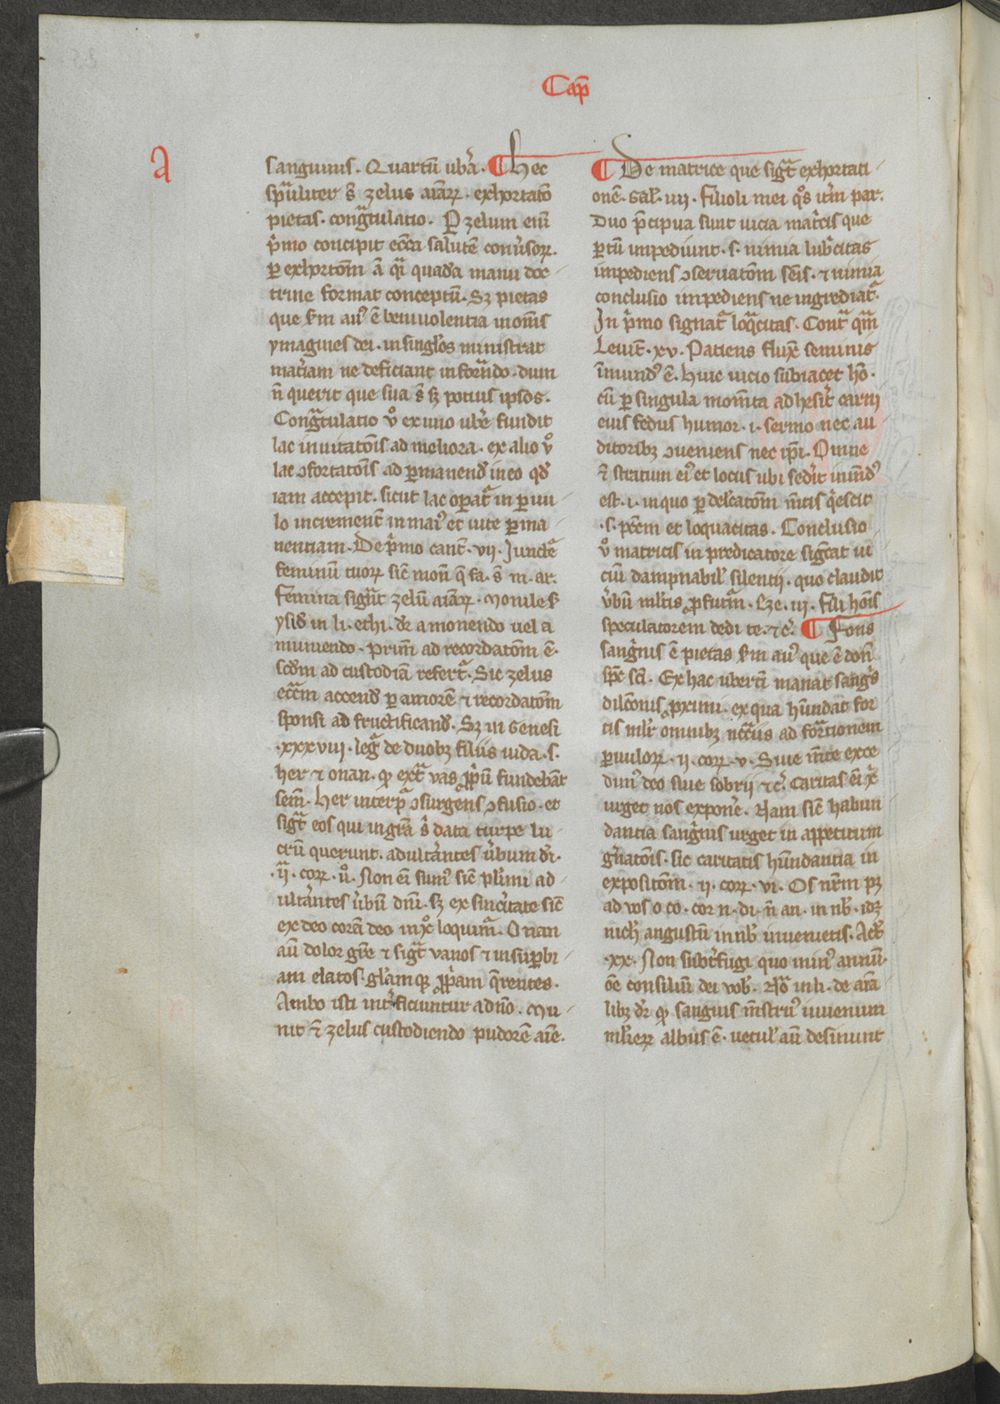 Cap̄
A
sanguinis. Quartū ubā. ¶ hec
spūaliter s̄ zelus aīaꝝ. exhortatō
pietas. congᷓtulatio. Ꝑ zelum enī
p̄mo concipit ecc̄a salutē conuīsoꝝ.
ꝑ exhortōm
trine format conceptū. Sꝫ pietas
que s̄m au᷒ ē beniuolentia in om̄s
ymagines dei. in singl̄os ministrat
mat̄iam ne deficiant in fouēdo. dum
n̄ querit que sua s̄ sꝫ potius ipsos.
Congᷓtulatio v̊ ex uno ub̄e fundit
lac inuitatōis ad meliora. ex alio v̊
lac ꝯfortatōis ad ꝑmanend̄ in eo qd̄
iam accepit. sicut lac oꝑat᷑ in ꝑuu
lo incremenī in mai᷒ et uite ꝑma
nentiam. De p̄mo cant̄. vij. Iunctē
feminū tuoꝝ sic̄ mon̄ q̄ fa. s̄ m. ar.
femina sigt̄ zelū aīaꝝ. Monile s̄
ysid̄ in li. ethi. dr̄ a monendo uel a
muniendo. prim̄ ad recordatōm ē.
scdm ad custodiam refert᷑. Sic zelus
ecc̄m accend̄ ꝑ amorē ⁊ recordatōm
sponsi ad fructificand̄. Sꝫ in Genesi
.xxxviii. leg᷑ de duobꝫ filiis iuda. s.
her ⁊ onan. qꝫ ext᷑ vas ꝓp̄ū fundebāt
sem̄. Her interp̄ ꝯsurgens ꝯfusio. et
sigt̄ eos qui in gr̄a s̄ data turpe lu
crū querunt. adult̄antes ūbum dī.
.ij. cor. ij̊. Non eī sum᷒ sic̄ pl̄imi ad
ult̄antes ūbū dn̄i. sꝫ ex sinc̄itate sic̄
ex deo corā deo in xp̊ loquim᷑. Onan
aū dolor gr̄e ⁊ sigt̄ vanos ⁊ in suꝑbi
am elatos. gl̄am qꝫ ꝓp̄am q̄rentes.
Ambo isti int̄ficiuntur a dn̄o. Mu
nit ⁊̄ zelus custodiendo pudorē aīe.
¶ De matrice que sigt̄ exhortati
onē. Gal̄. iiij. Filioli mei q̊s itm̄ par.
Duo p̄cipua sunt uicia mat̄cis que
ꝑtū impediunt. s. nimia lub̄citas
impediens ꝯseruatōm sem̄s. ⁊ nimia
conclusio impediens ne ingrediat᷑.
In p̄mo signat᷑ loqᷓcitas. Cont᷑ qᷓm
Leuit̄. xv. Patiens flux̄ seminis
īmund᷒ ē. Huic uicio subiacet hō.
cū ꝑ singula mom̄ta adhesit̄ carni
eius fedus humor. i. sermo nec au
ditoribꝫ ꝯueniens nec ip̄i. Omne
⁊ stratum ei᷒ et locus ubi sed̄it inmūd᷒
est. i. in quo ꝑ delcatōm m̄tis q̄escit
.s. p̄cm et loquacitas. Conclusio
v̊ matricis in predicatore sigt̄at ui
ciū dampnabil̄ silentii. quo claudit
ūbū ml̄tis ꝓfutm̄. Eze. iij. fili hoīs
speculatorem dedi te. ⁊c̄. ¶ Fons
sanguīs ē pietas s̄m au᷒ que ē don̄
sp̄c sc̄i. Ex hac ubertī manat sangs̄
dilcōnis ꝓximi. ex qua hūndat for
tis ml̄r omnibꝫ nc̄c̄iis ad fort̄ionem
ꝑuuloꝝ. ij. cor. v. Siue m̄te exce
dim᷒ deo siue sobrij ⁊c̄. Caritas eī x̄
urget nos expon̄e. Nam sic̄ habun
dantia sangīs urget in appetitum
gn̄atōis. sic caritatis hūndantia in
expositōm. ij. cor. vi. Os nr̄m pꝫ
ad vos o co. cor n. di. n̄ an. in nb̄. idꝫ
nich̄ angustū in nb̄ inuenietis. Act̄
.xx. Non sūbt̄fugi quo min᷒ annū.
ōe consiliū dei vob̄. Aꝛ̊ in li. de aīa
libꝫ dr̄ qꝫ sanguis m̄struꝰ iuuenum
ml̄ieꝝ albus ē. uetul̄ aū desinunt